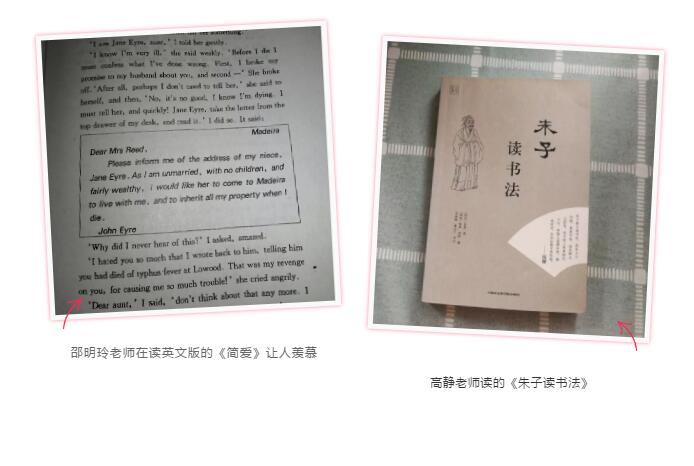 'I am Jane Eyre, aunt,' I told her gently.
'I know I'm very ill,' she said weakly. 'Before I die I
must confess what I've done wrong. First, I broke my
promise to my husband about you, and second —' She broke
off. 'After all, perhaps I don't need to tell her,' she said to
herself, and then, 'No, it's no good, I know I'm dying. I
must tell her, and quickly! Jane Eyre, take the letter from the
top drawer of my desk, and read it.' I did so. It said:
Madeira
Dear Mrs Reed,
Please inform me of the address of my niece,
Jane Eyre. As I am unmarried, with no children, and
fairly wealthy, I would like her to come to Madeira
to live with me, and to inherit all my property when I
die.
John Eyre
'Why did I never hear of this?' I asked, amazed.
'I hated you so much that I wrote back to him, telling him
you had died of typhus fever at Lowood. That was my revenge
on you, for causing me so much trouble!' she cried angrily.
'Dear aunt,' I said, 'don't think about that any more. I
邵明玲老师在读英文版的《简爱》让人羡慕
朱子
读书法
高静老师读的《朱子读书法》